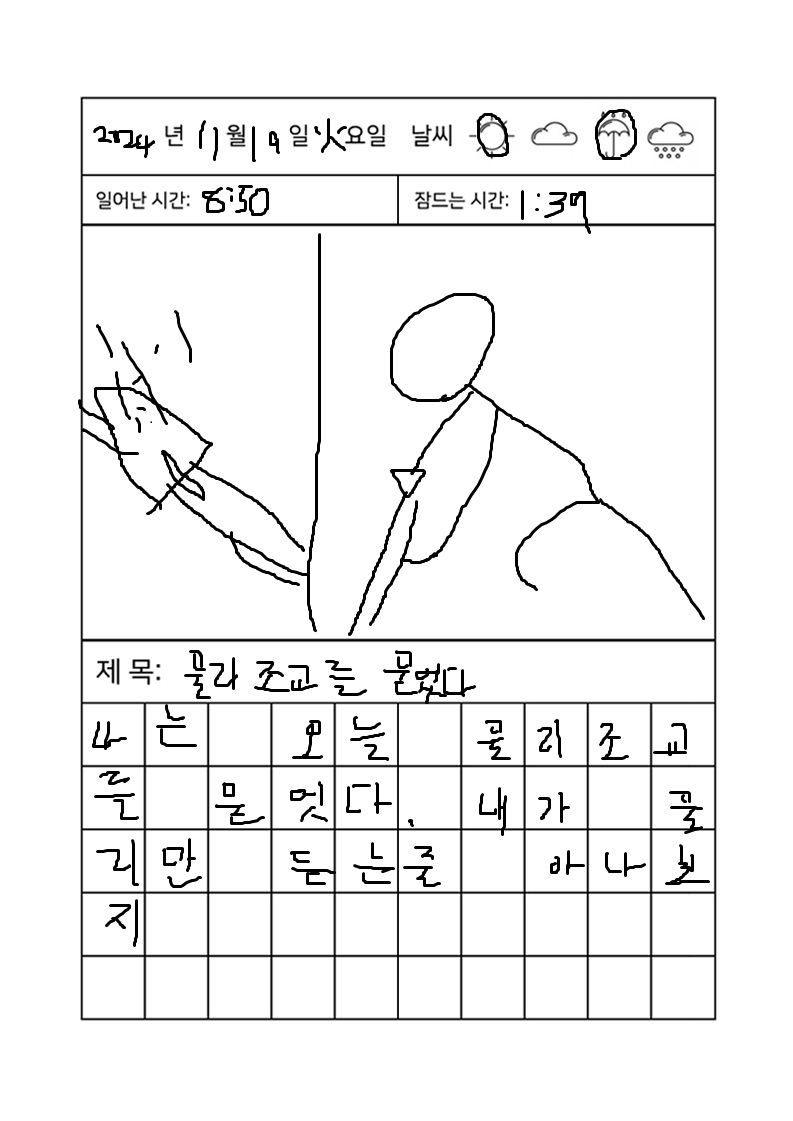 2024 년 11 월 19 일 火요일 날씨
일어난 시간: 8:50 잠드는 시간: 1:37
제 목: 물리 조교를 묻었다
나는 오늘 물리조교
를 묻엇다. 내가 물
리만 듣는줄 아나보
지